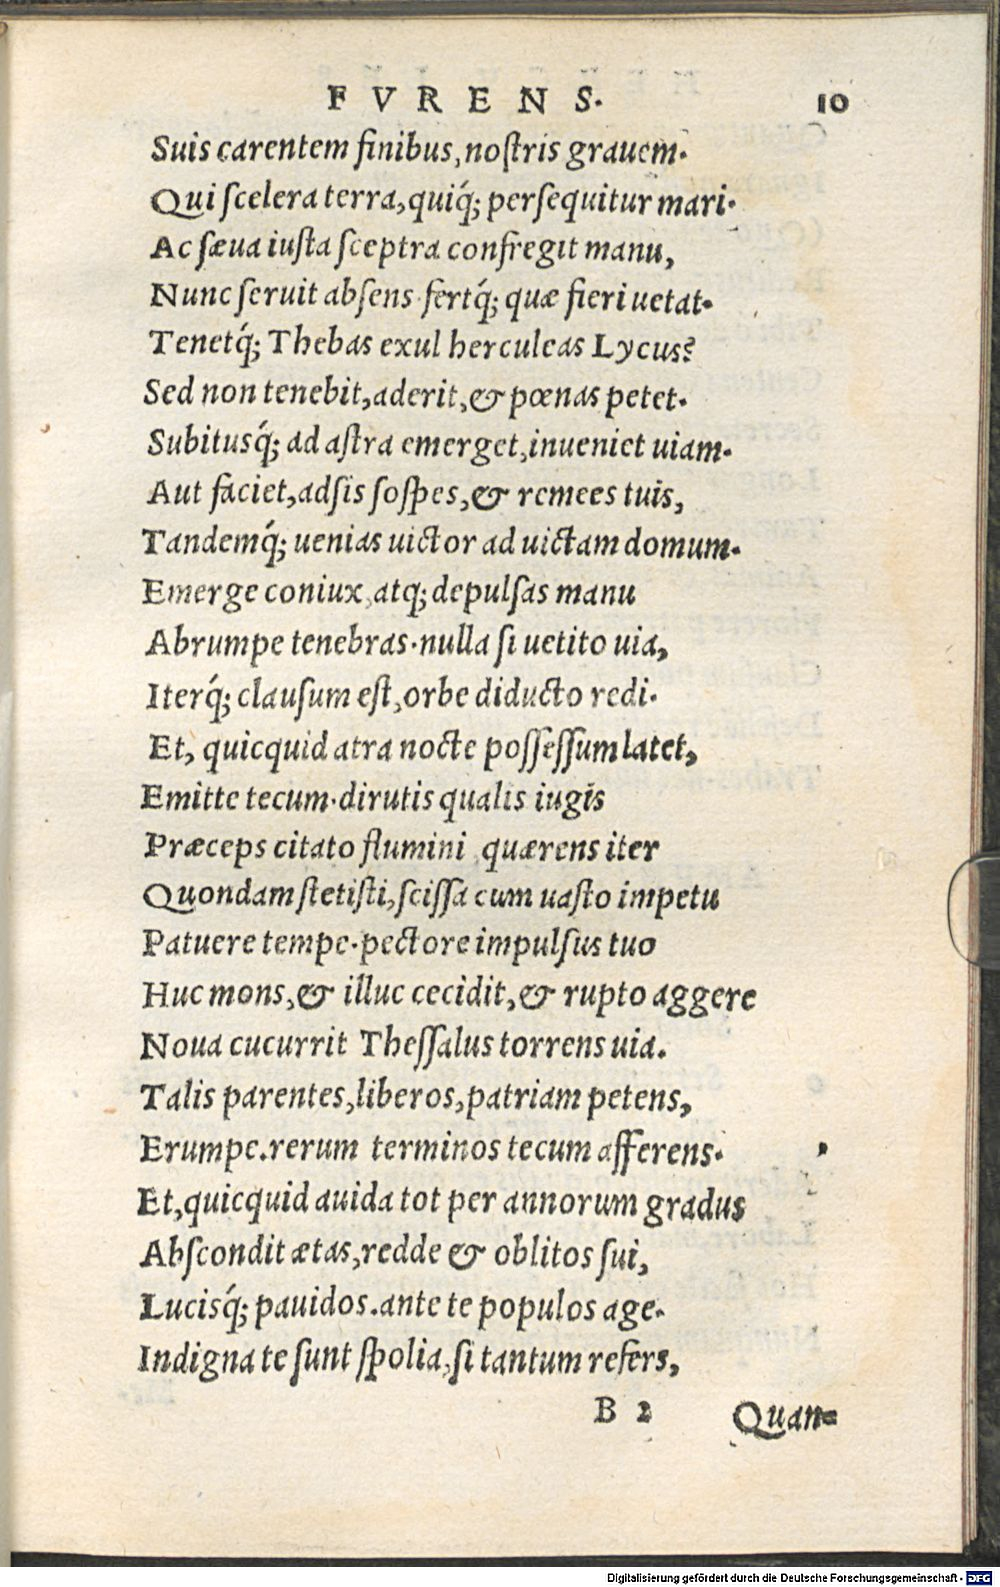 FVRENS. 10
Suis carentem finibus, nostris grauem.
Qui scelera terra, quiq́; persequitur mari.
Ac sæua iusta sceptra confregit manu,
Nunc seruit absens. fertq́; quæ fieri uetat.
Tenetq́; Thebas exul herculeas Lycus?
Sed non tenebit, aderit, & pœnas petet.
Subitusq́; ad astra emerget, inueniet uiam.
Aut faciet, adsis sospes, & remees tuis,
Tandemq́; uenias uictor ad uictam domum.
Emerge coniux, atq; depulsas manu
Abrumpe tenebras. nulla si uetito uia,
Iterq́; clausum est, orbe diducto redi.
Et, quicquid atra nocte possessum latet,
Emitte tecum. dirutis qualis iugis
Præceps citato flumini quærens iter
Quondam stetisti, scissa cum uasto impetu
Patuere tempe. pectore impulsus tuo
Huc mons, & illuc cecidit, & rupto aggere
Noua cucurrit Thessalus torrens uia.
Talis parentes, liberos, patriam petens,
Erumpe. rerum terminos tecum afferens.
Et, quicquid auida tot per annorum gradus
Abscondit ætas, redde & oblitos sui,
Lucisq́; pauidos. ante te populos age.
Indigna te sunt spolia, si tantum refers,
B 2 Quan=
Digitalisierung gefördert durch die Deutsche Forschungsgemeinschaft - DFG